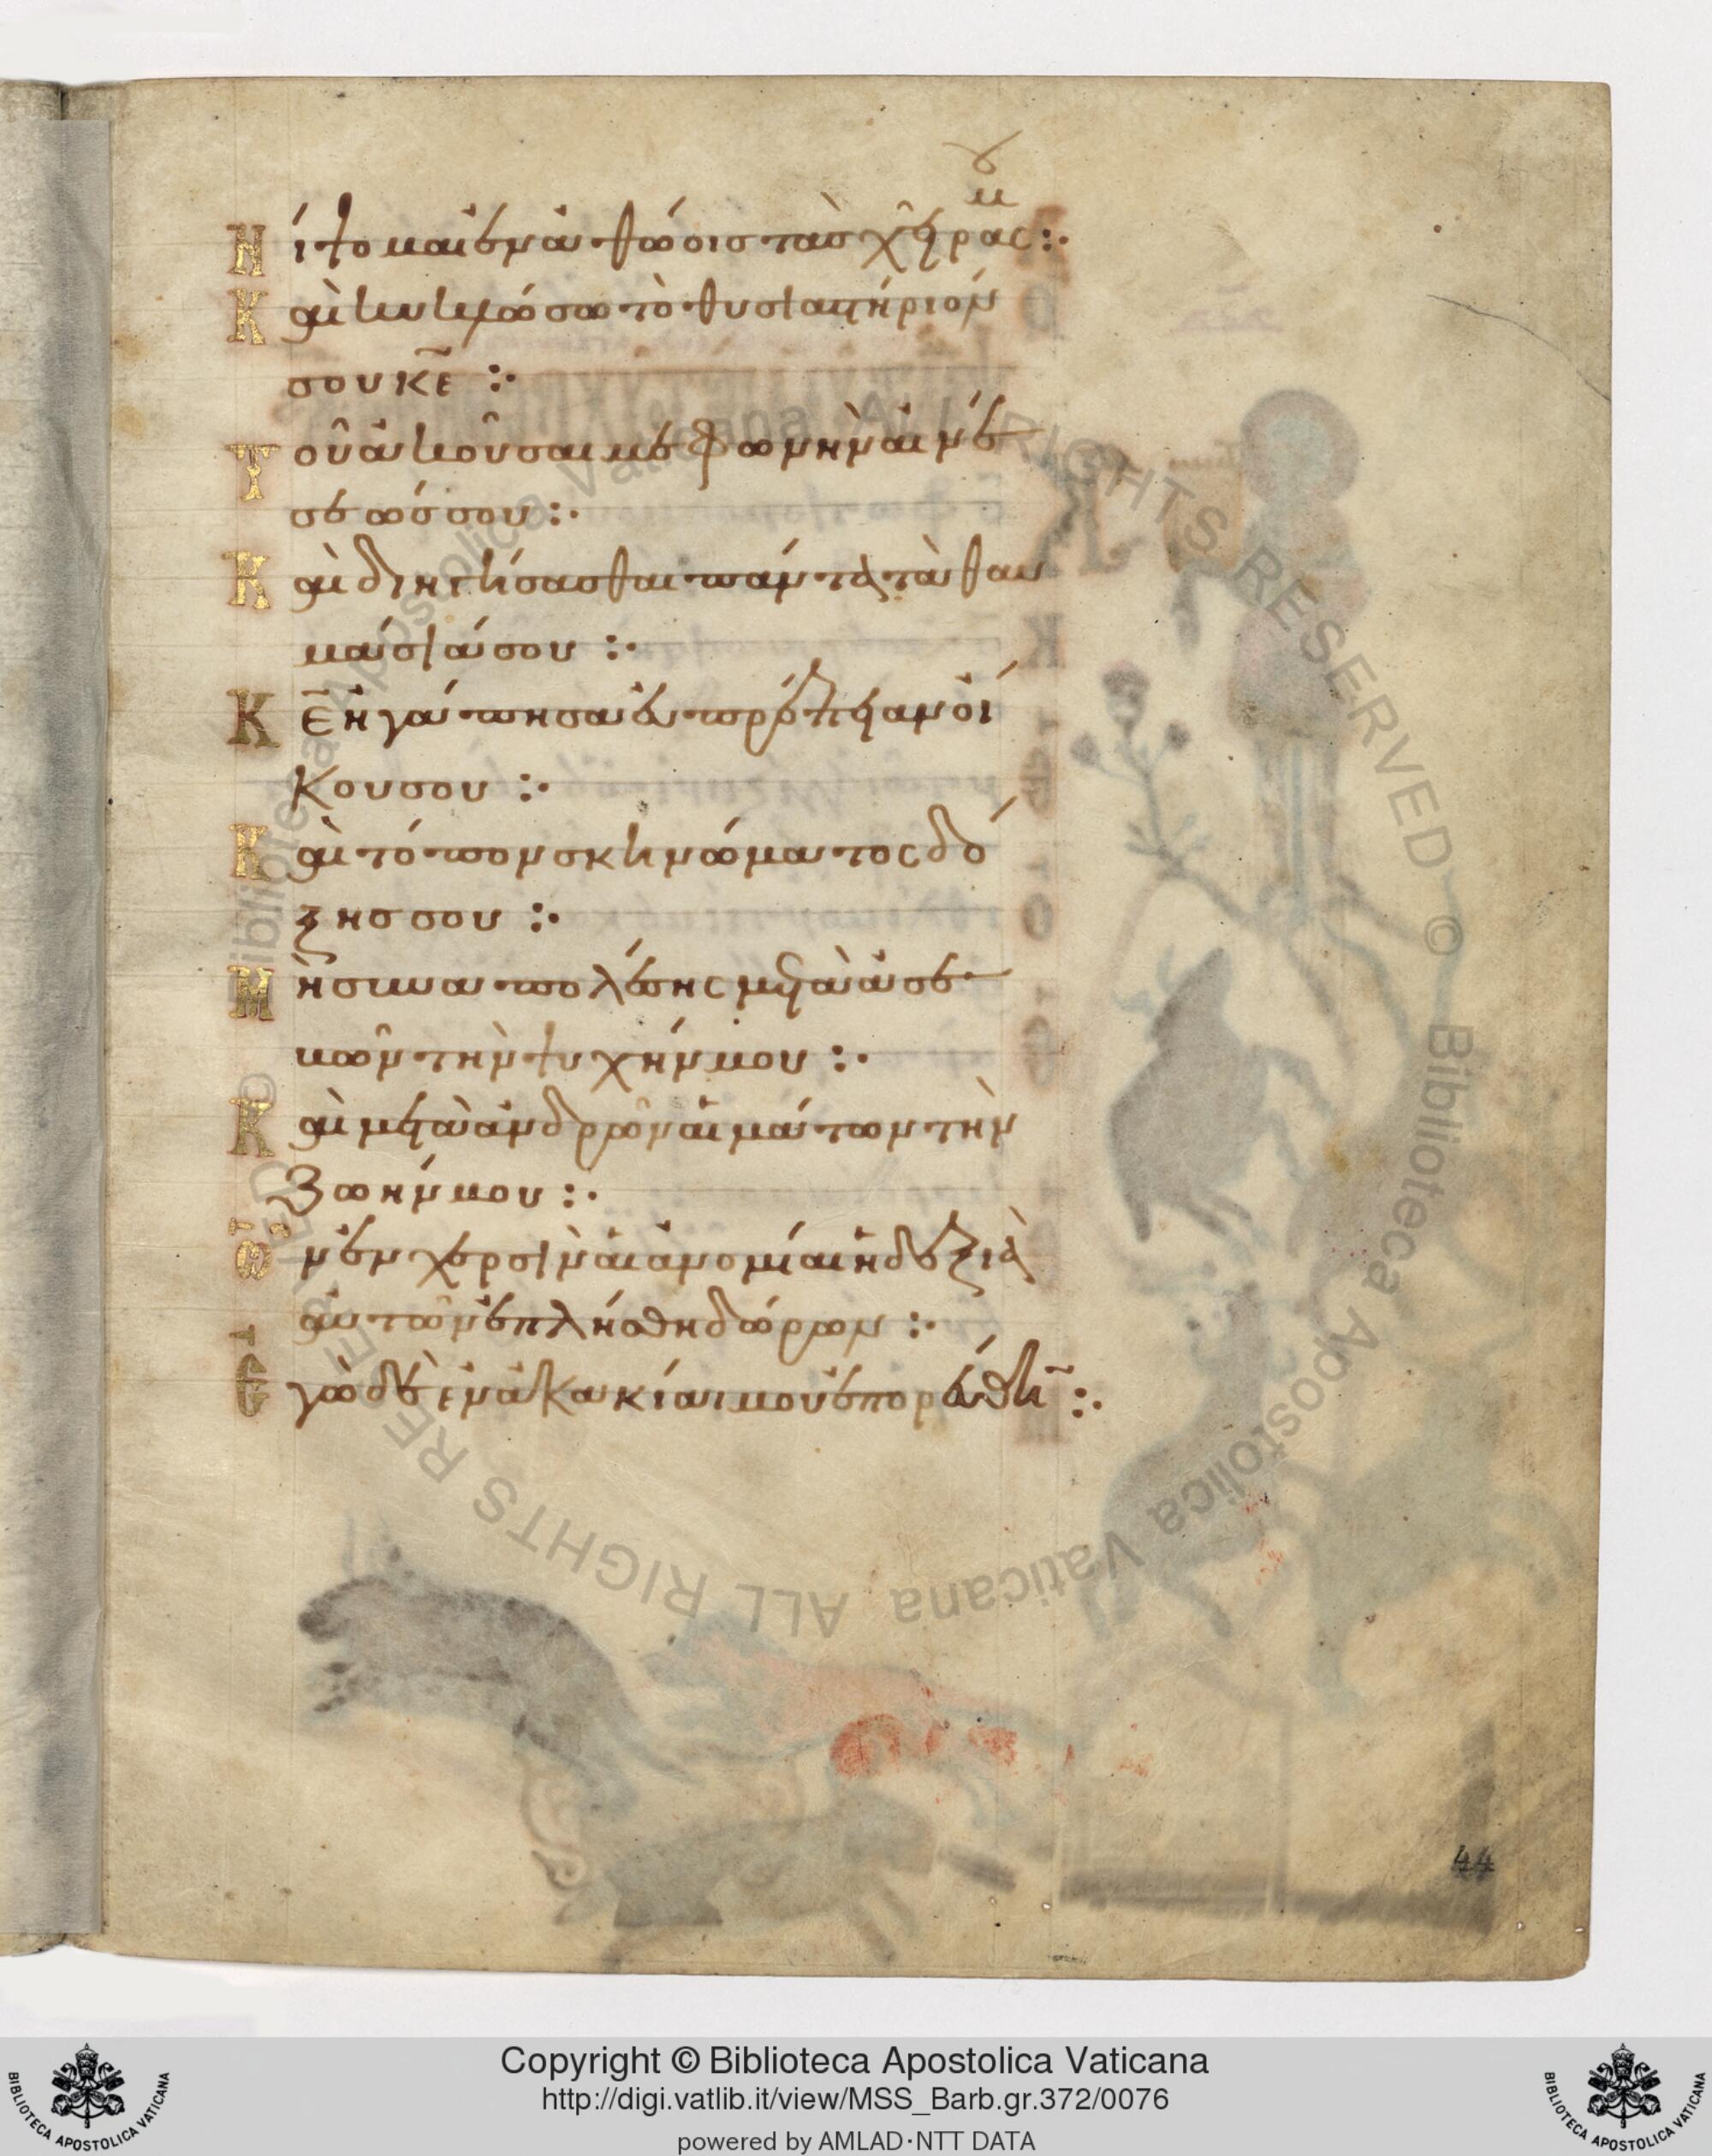 Νίψομαι ἐν ἀθώοις τὰς χεῖράς μου :·
Καὶ κυκλώσω τὸ θυσιαστήριον
σου κ̅ε̅ :·
Τοῦ ἀκοῦσαί με φωνὴν αἰνέ
σεώς σου :·
Καὶ διηγήσασθαι πάντα τὰ θαυ
μάσιά σου :·
Κ̅ε̅ ἠγάπησα εὐπρέπειαν οἴ
κου σου :·
Καὶ τόπον σκηνώματος δό
ξης σου :·
Μὴ συναπολέσῃς μετὰ ἀσε
βῶν τὴν ψυχήν μου :·
Καὶ μετὰ ἀνδρῶν αἱμάτων τὴν
ζωήν μου :·
Ὧν ἐν χερσὶν αἱ ἀνομίαι ἡ δεξιὰ
αὐτῶν ἐπλήσθη δώρων :·
Ἐγὼ δὲ ἐν ἀκακίᾳ μου ἐπορεύθην :·
44
Biblioteca Apostolica Vaticana ALL RIGHTS RESERVED ©
Biblioteca Apostolica Vaticana ALL RIGHTS RESERVED ©
Copyright © Biblioteca Apostolica Vaticana
http://digi.vatlib.it/view/MSS_Barb.gr.372/0076
powered by AMLAD·NTT DATA
BIBLIOTECA APOSTOLICA VATICANA
BIBLIOTECA APOSTOLICA VATICANA